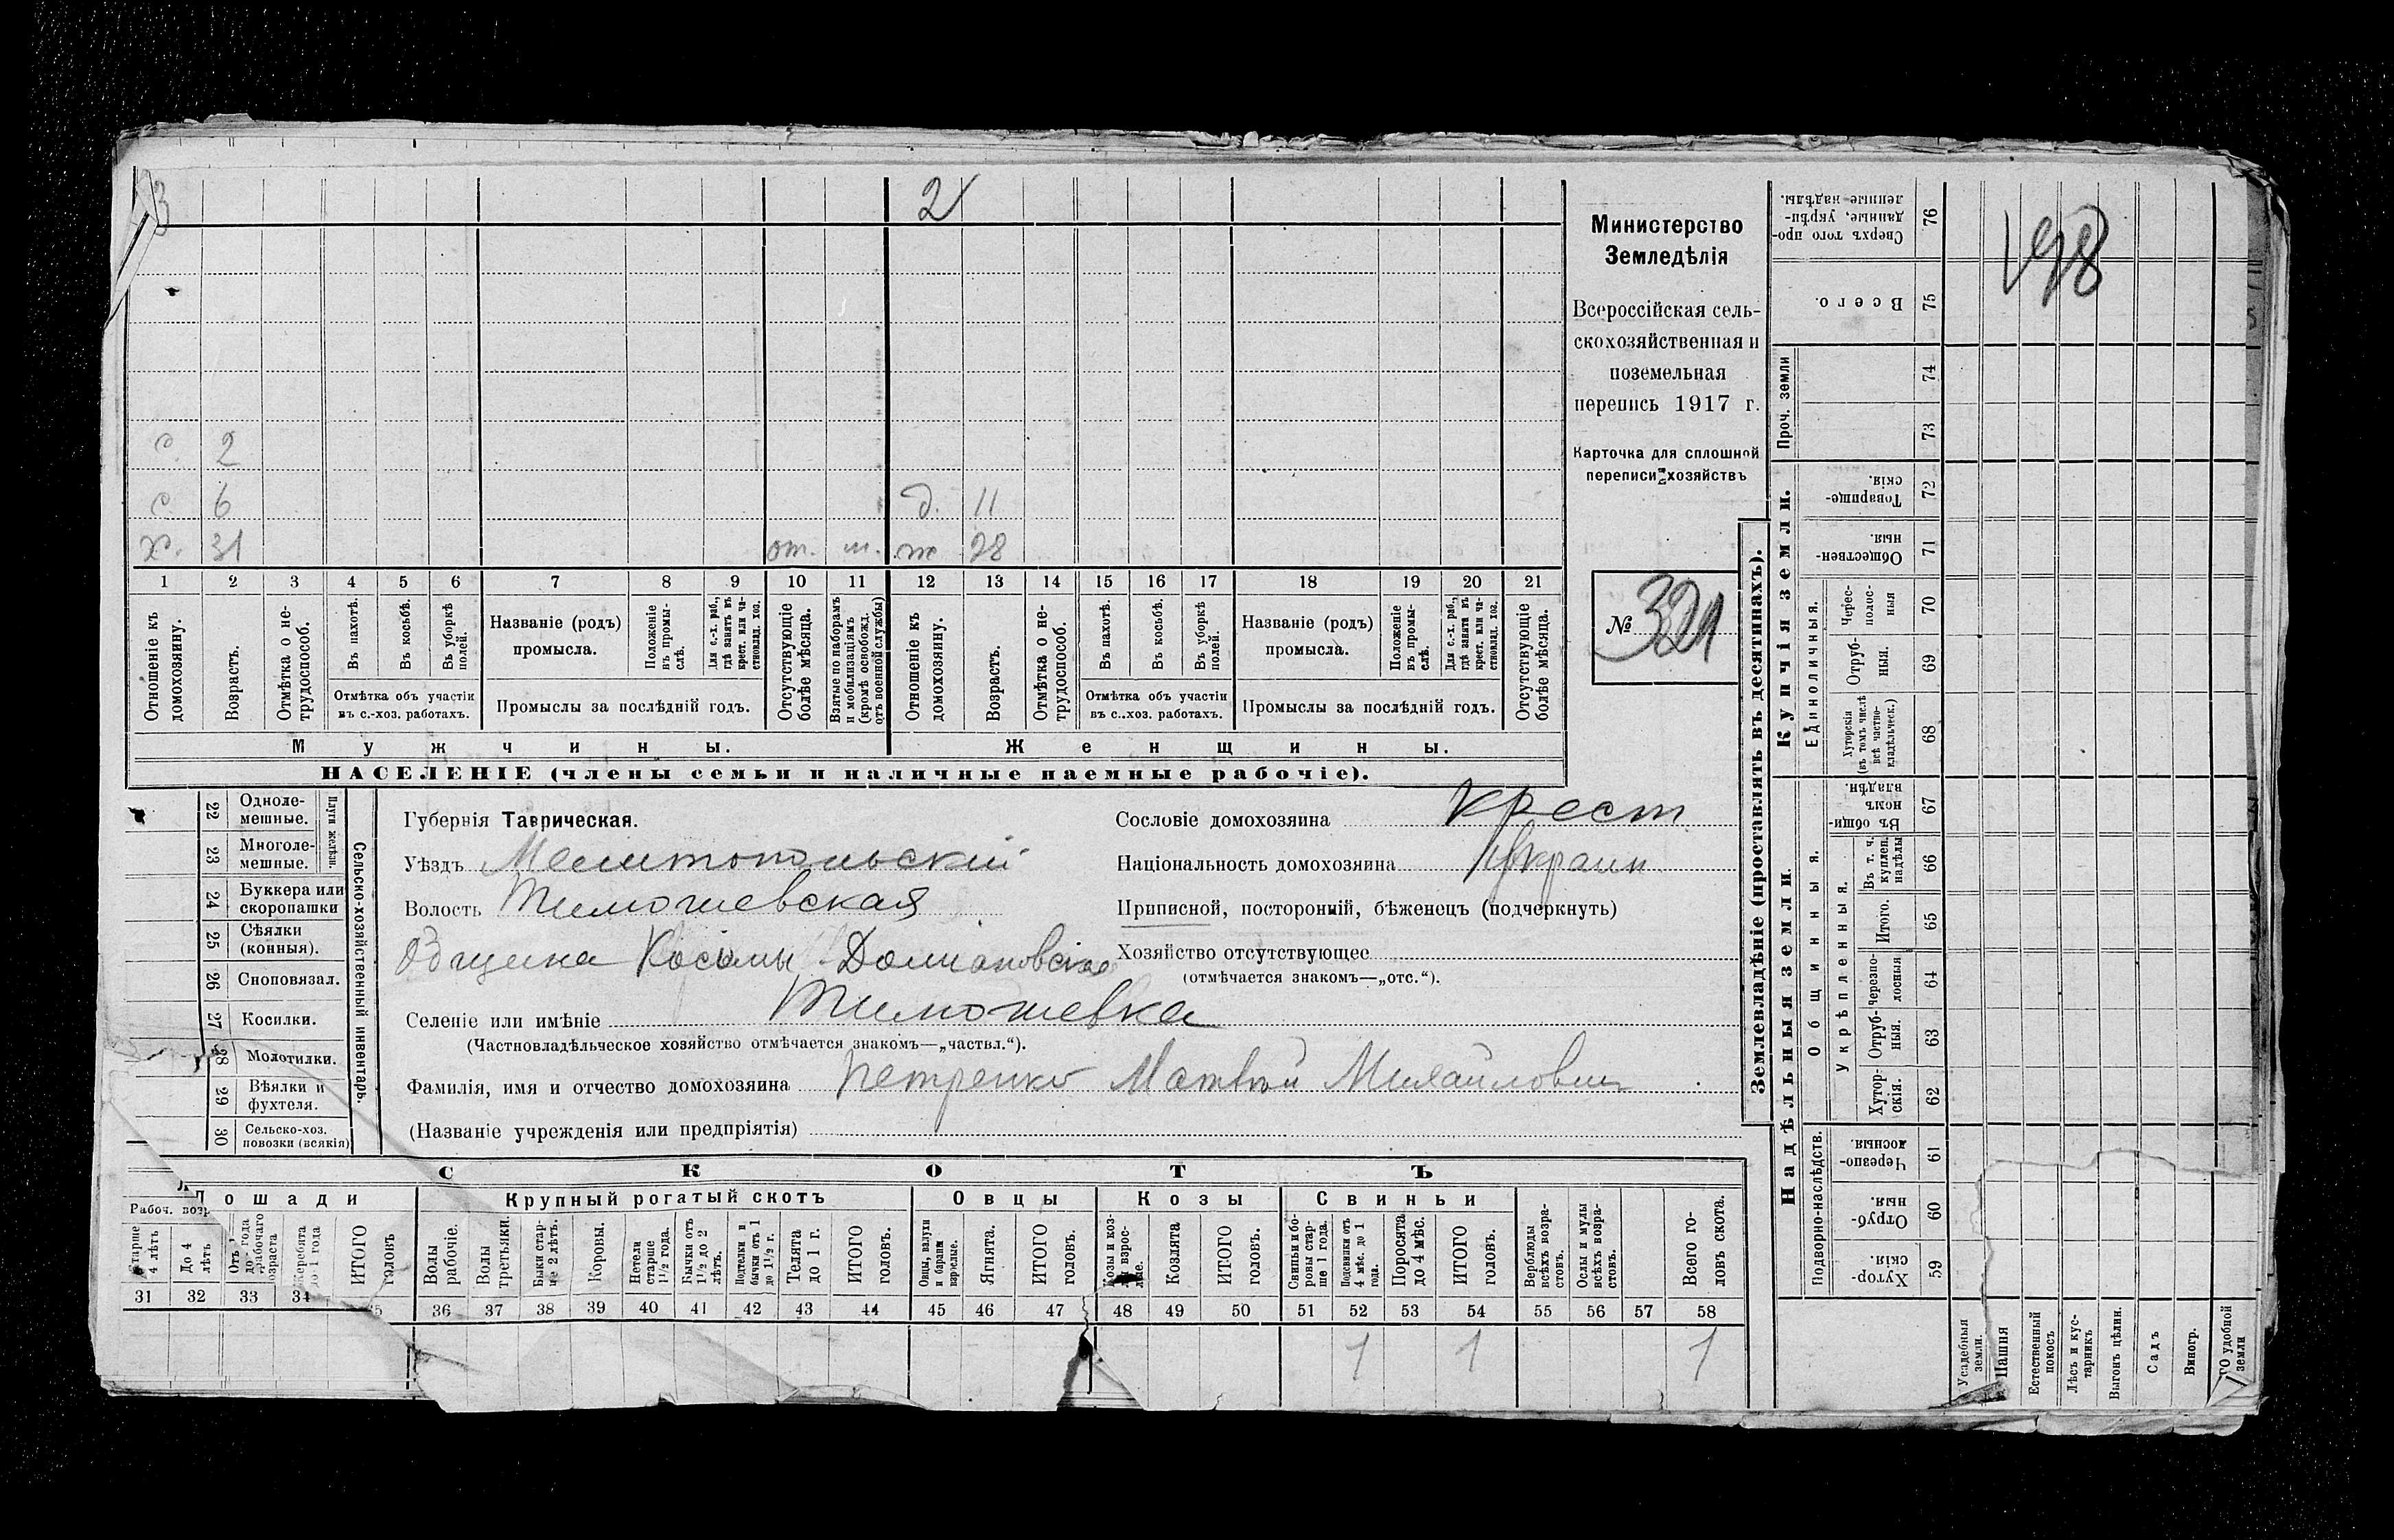 3
2
с. 2
с. 6 д. 11
х. 31 от. м. ж 28
1 2 3 4 5 6 7 8 9 10 11 12 13 14 15 16 17 18 19 20 21
Отношеніе къ домохозяину.
Возрастъ.
Отмѣтка о нетрудоспособ.
Въ пахотѣ.
Въ косьбѣ.
Въ уборкѣ полей.
Отмѣтка объ участіи
въ с.-хоз. работахъ.
Названіе (родъ)
промысла.
Положеніе въ промыслѣ.
Для с.-х. раб., гдѣ занятъ въ крест. или частновлад. хоз.
Промыслы за послѣдній годъ.
Отсутствующіе болѣе мѣсяца.
Взятые по наборамъ и мобилизаціямъ (кромѣ освобожд. отъ военной службы)
Отношеніе къ домохозяину.
Возрастъ.
Отмѣтка о нетрудоспособ.
Въ пахотѣ.
Въ косьбѣ.
Въ уборкѣ полей.
Отмѣтка объ участіи
въ с..хоз. работахъ.
Названіе (родъ)
промысла.
Положеніе въ промыслѣ.
Для с.-х. раб., гдѣ занята въ крест. или частновлад. хоз.
Промыслы за послѣдній годъ.
Отсутствующіе болѣе мѣсяца.
Мужчины.
Женщины.
НАСЕЛЕНІЕ (члены семьи и наличные наемные рабочіе).
Министерство
Земледѣлія
Всероссійская сель-
скохозяйственная и
поземельная
перепись 1917 г.
Карточка для сплошной
переписи хозяйствъ
№ 321
22 Одноле-
мешные.
23 Многоле-
мешные.
Плуги желѣзн.
24 Буккера или
скоропашки
25 Сѣялки
(конныя).
26 Сноповязал.
27 Косилки.
28 Молотилки.
29 Вѣялки и
фухтеля.
30 Сельско-хоз.
повозки (всякія)
Сельско-хозяйственный инвентарь.
Губернія Таврическая.
Уѣздъ Мелитопольскій
Волость Тимошевская
Община Косьмы Доміановское
Селеніе или имѣніе Тимошевка
(Частновладѣльческое хозяйство отмѣчается знакомъ—„частвл.“).
Фамилія, имя и отчество домохозяина Петренко Матвѣй Михайлович
(Названіе учрежденія или предпріятія)
Сословіе домохозяина крест
Національность домохозяина Украин
Приписной, посторонній, бѣженецъ (подчеркнуть)
Хозяйство отсутствующее
(отмѣчается знакомъ—„отс.“).
СКОТЪ
Лошади
Рабоч. возр
Старше 4 лѣтъ
До 4 лѣтъ
Жеребята до 1 года
ИТОГО головъ
Крупный рогатый скотъ
Волы рабочіе.
Волы третьяки.
Быки старше 2 лѣтъ.
Коровы.
Нетели старше 1½ года.
Бычки отъ 1½ до 2 лѣтъ.
Подтелки и бычки отъ 1 до 1½ г.
Телята до 1 г.
ИТОГО головъ.
Овцы
Овцы, валухи и бараны взрослые.
Ягнята.
ИТОГО головъ.
Козы
Козы и козлы взрослые.
Козлята
ИТОГО головъ.
Свиньи
Свиньи и боровы старше 1 года.
Подсвинки отъ 4 мѣс. до 1 года.
Поросята до 4 мѣс.
ИТОГО головъ.
Верблюды всѣхъ возрастовъ.
Ослы и мулы всѣхъ возрастовъ.
Всего головъ скота.
31 32 33 34 35 36 37 38 39 40 41 42 43 44 45 46 47 48 49 50 51 52 53 54 55 56 57 58
1 1 1
Землевладѣніе (проставлять въ десятинахъ).
Купчія земли.
Надѣльныя земли.
Сверхъ того проданные, укрѣпленные надѣлы. 76
Всего. 75
Проч. земли
74
73
Товарищескія. 72
Общественныя. 71
Единоличныя.
Чересполосныя 70
Отрубныя. 69
Хуторскія (въ томъ числѣ всѣ частновладѣльческ.) 68
Общинныя.
Въ общинномъ владѣн. 67
Укрѣпленныя.
Въ т. ч. куплен. надѣлы 66
Итого. 65
Черезполосныя 64
Отрубныя. 63
Хуторскія. 62
Подворно-наслѣдств.
Черезполосныя. 61
Отрубныя. 60
Хуторскія. 59
Усадебныя земли.
Пашня
Естественный покосъ
Лѣсъ и кустарникъ
Выгонъ цѣлин.
Садъ
Виногр.
удобной земли
198